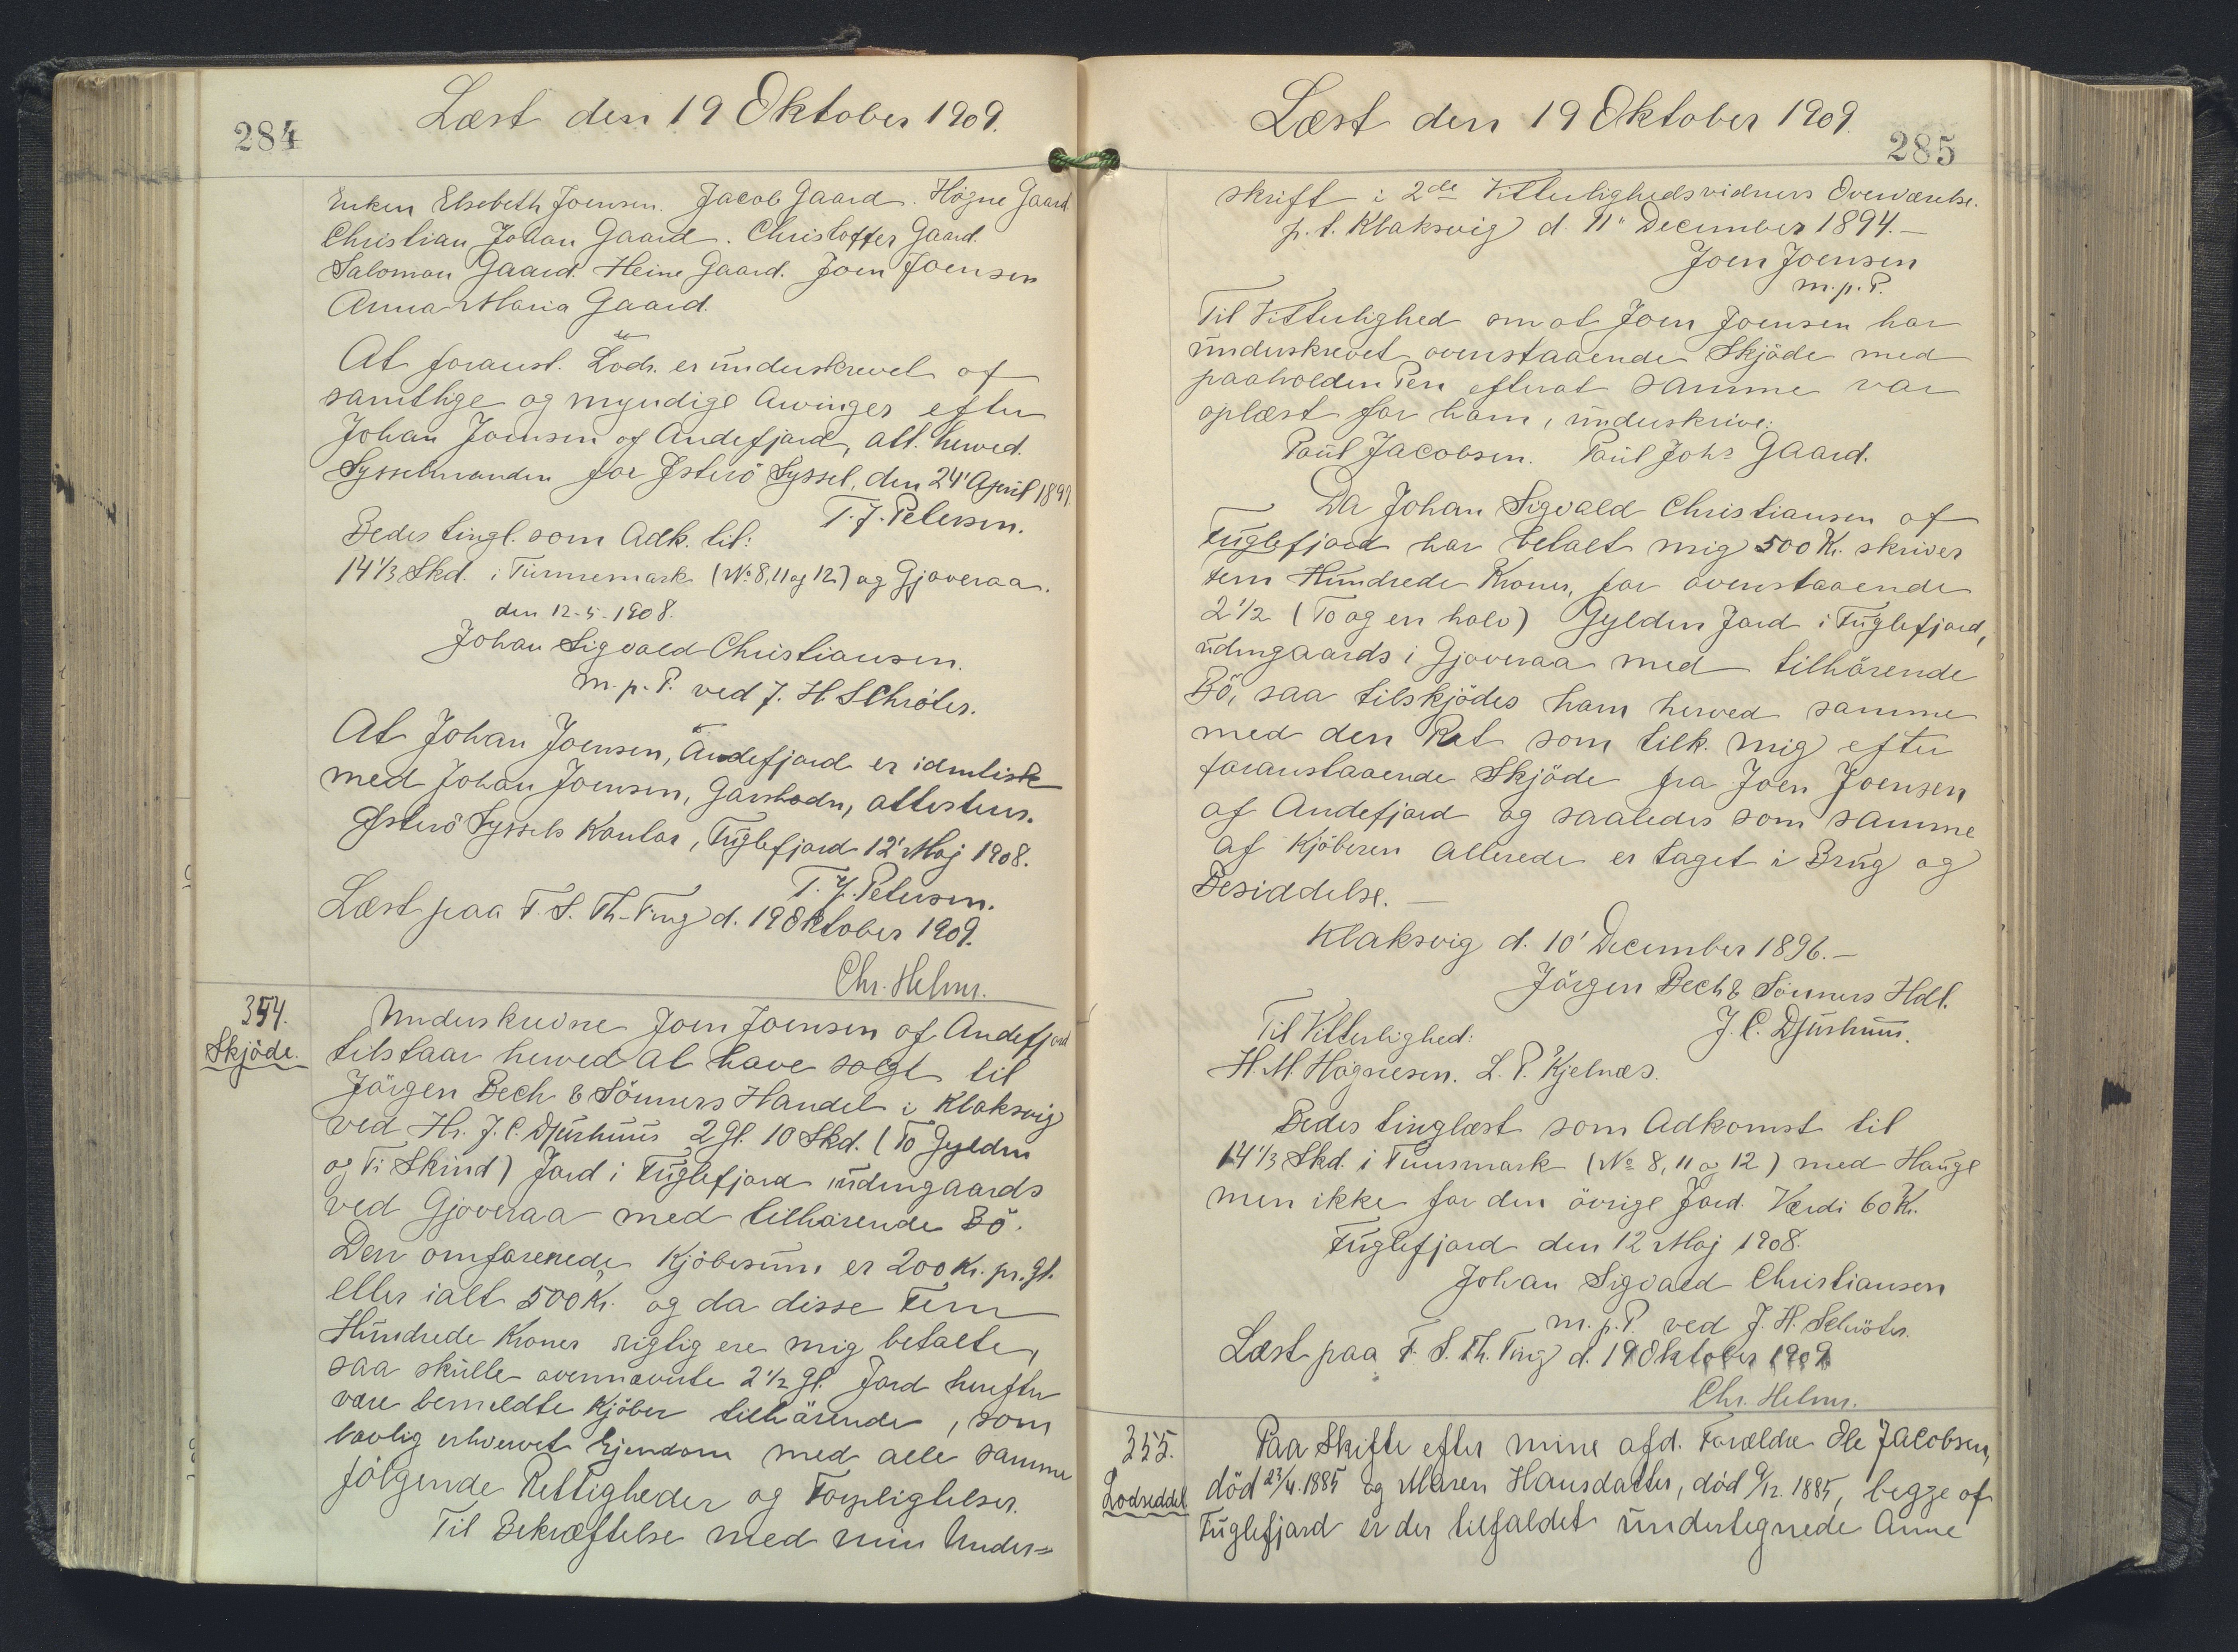 284
Læst den 19 Oktober 1909.
Enken Elsebeth Joensen. Jacob Gaard. Högne Gaard
Christian Johan Gaard. Christoffer Gaard.
Salomon Gaard. Heine Gaard. Joen Joensen
Anna Maria Gaard.
At foranst. Lods. er underskrevet af
samtlige og myndige Arvinger efter
Johan Joensen af Andefjord, att. herved.
Sysselmanden for Østerö Syssel, den 24' April 1899
T. J. Petersen.
Bedes tingl. som Adk. til:
14 1/3 Skd. i Tunnemark (No 8, 11 og 12) og Gjoveraa.
den 12-5-1908.
Johan Sigvald Christiansen.
m. p. P. ved J. H. Schröter.
At Johan Joensen, Andefjord er identisk
med Johan Joensen, Garshodn, attesteres.
Østerö Syssels Kontor, Fuglefjord 12' Maj 1908.
T. J. Petersen.
Læst paa F. S. Th-Ting d. 19 Oktober 1909.
Chr. Helms.
354.
Skjöde.
Underskrevne Joen Joensen af Andefjord
tilstaar herved at have solgt til
Jörgen Bech & Sönners Handel i Klaksvig
ved Hr. J. C. Djurhuus 2 Gl. 10 Skd. (To Gylden
og Ti Skind) Jord i Fuglefjord udengaards
ved Gjoveraa med tilhörende Bö.
Den omforenede Kjöbesum er 200 Kr. pr. Gl.
eller ialt 500 Kr. og da disse Fem
Hundrede Kroner rigtig ere mig betalte,
saa skulle ovennævnte 2 1/2 Gl. Jord herefter
være bemeldte Kjöber tilhörende, som
lovlig erhvervet Ejendom med alle samme
fölgende Rettigheder og Forpligtelser.
Til Bekræftelse med min Under=
Læst den 19 Oktober 1909.
285
skrift i 2de Vitterlighedsvidners Overværelse.
p. t. Klaksvig d. 11" December 1894.—
Joen Joensen
m. p. P.
Til Vitterlighed om at Joen Joensen har
underskrevet ovenstaaende Skjöde med
paaholden Pen efterat samme var
oplæst for ham, underskrive:
Paul Jacobsen. Paul Johs Gaard.
Da Johan Sigvald Christiansen af
Fuglefjord har betalt mig 500 Kr. skriver
fem Hundrede Kroner, for ovenstaaende
2 1/2 (To og en halv) Gylden Jord i Fuglefjord,
udengaards i Gjoveraa med tilhörende
Bö, saa tilskjödes ham herved samme
med den Ret som tilk. mig efter
foranstaaende Skjöde fra Joen Joensen
af Andefjord og saaledes som samme
af Kjöberen allerede er taget i Brug og
Besiddelse.—
Klaksvig d. 10' December 1896.—
Jörgen Bech & Sönners Hdl.
J. C. Djurhuus.
Til Vitterlighed:
H. M. Högnesen. L. P. Kjelnæs.
Bedes tinglæst som Adkomst til
14 1/3 Skd. i Tunnsmark (No 8, 11 og 12) med Hauge
men ikke for den övrige Jord. Værdi 60 Kr.
Fuglefjord den 12 Maj 1908.
Johan Sigvald Christiansen
m. p. P. ved J. H. Schröter.
Læst paa F. S. Th. Ting d. 19 Oktober 1909
Chr. Helms.
355.
Lodseddel
Paa Skifte efter mine afd. Forældre Ole Jacobsen,
död 23/4. 1885 og Maren Hansdatter, död 9/12. 1885, begge af
Fuglefjord er der tilfaldet undertegnede Anne